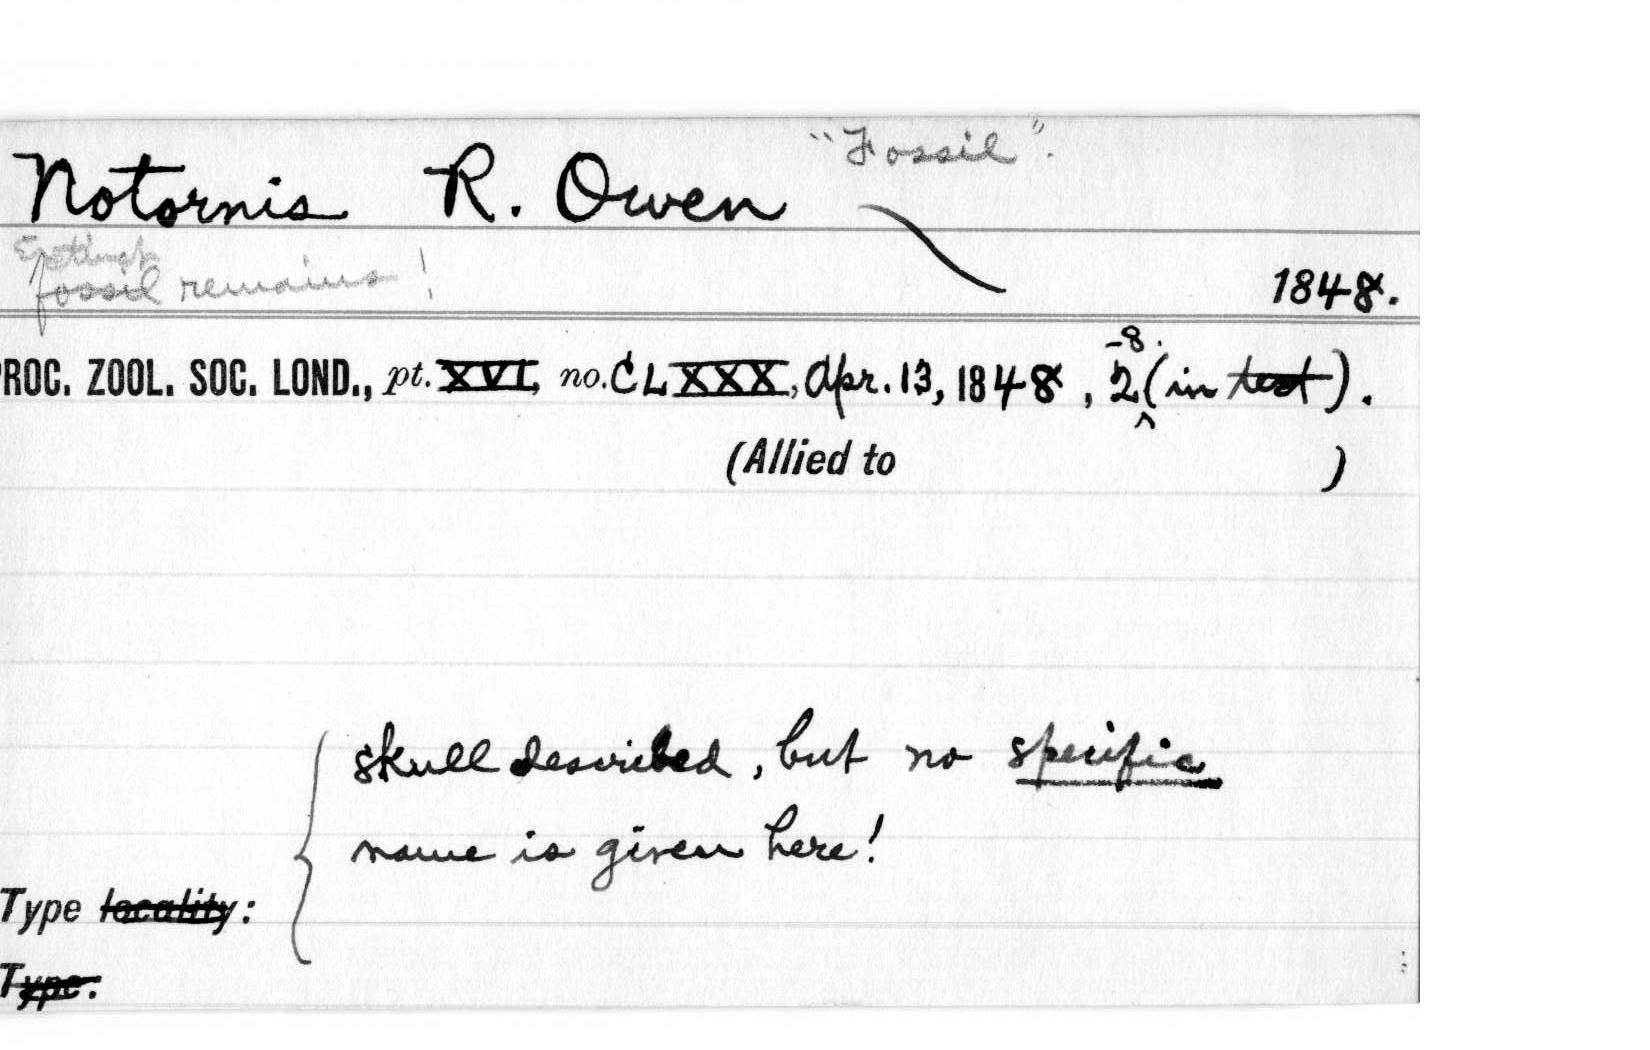 "Fossil".
Notornis R. Owen
fossil remains!
1848.
PROC. ZOOL. SOC. LOND., pt. XVI, no. CLXXX, Apr. 13, 1848, 2-8. (in text).
(Allied to )
skull described, but no specific
name is given here!
Type locality:
Type: